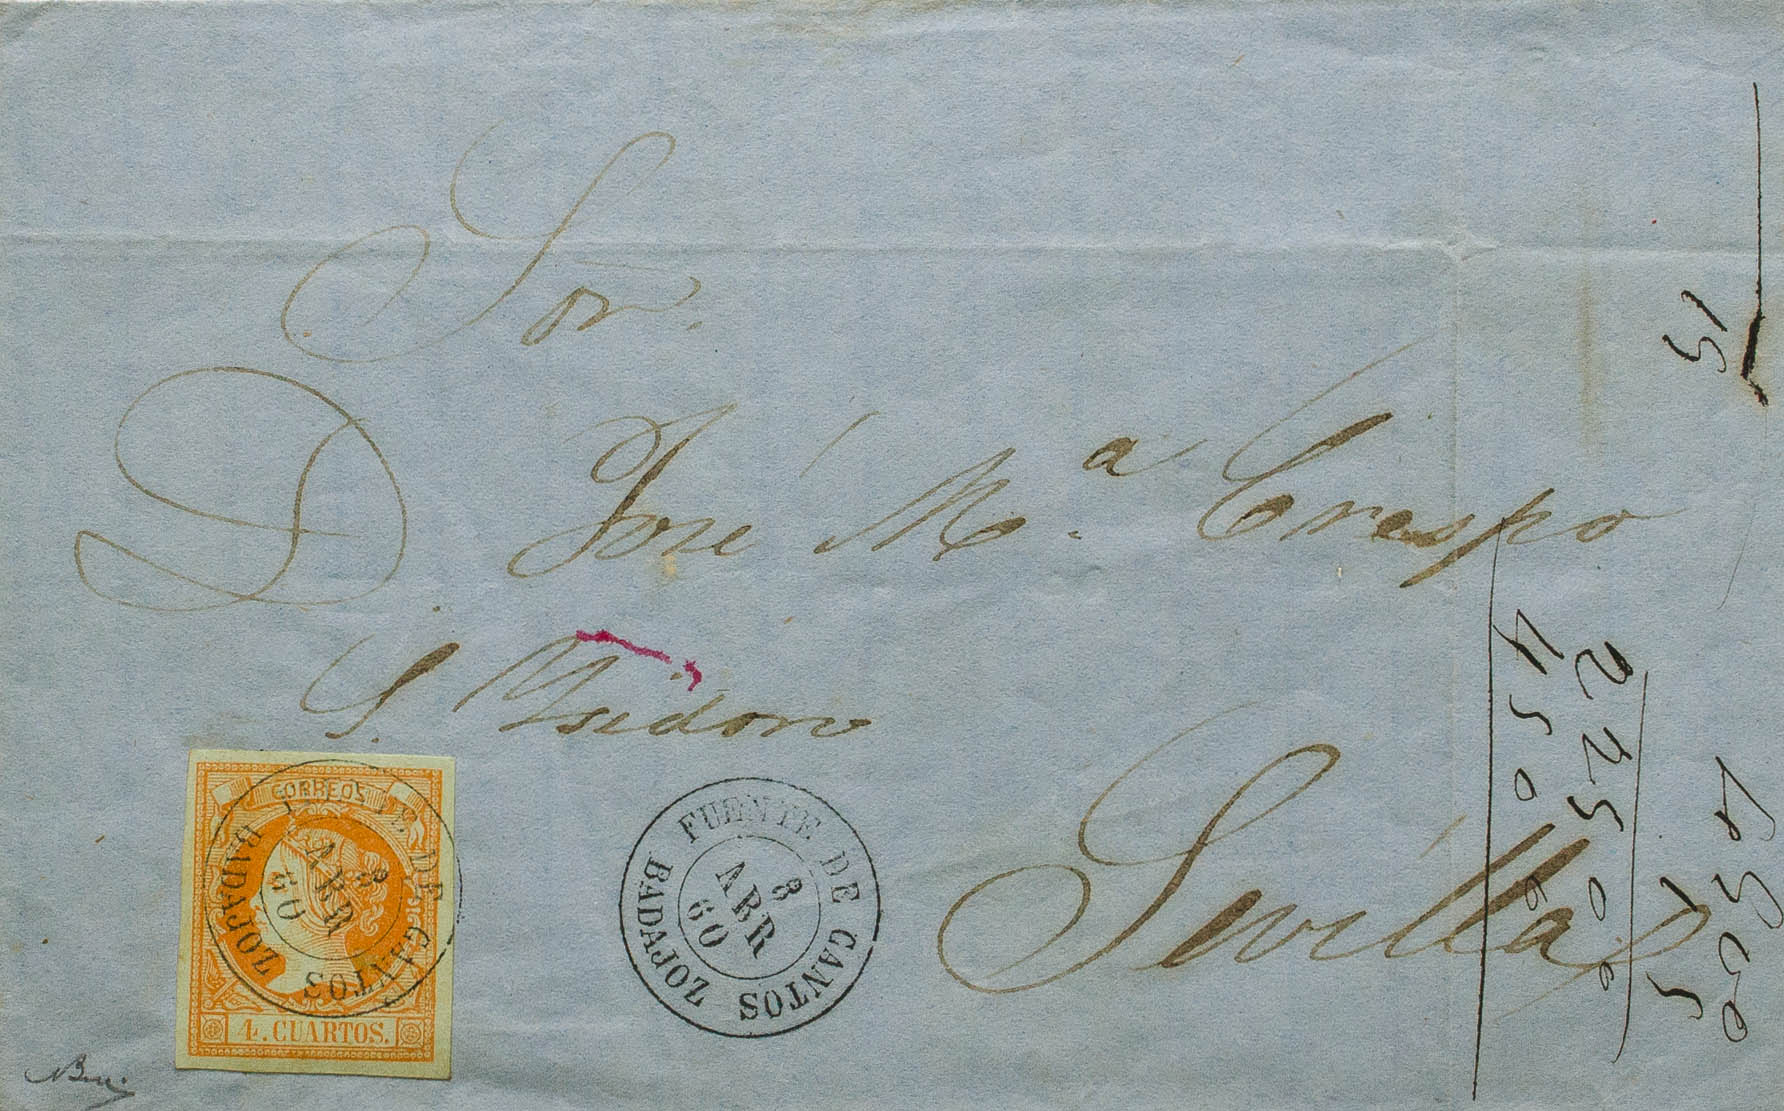 Sor.
D José Mª. Crespo
S. Ysidoro
Sevilla
CORREOS
4. CUARTOS.
FUENTE DE CANTOS
8
ABR
60
BADAJOZ
FUENTE DE CANTOS
8
ABR
60
BADAJOZ
15
4500
22500
15